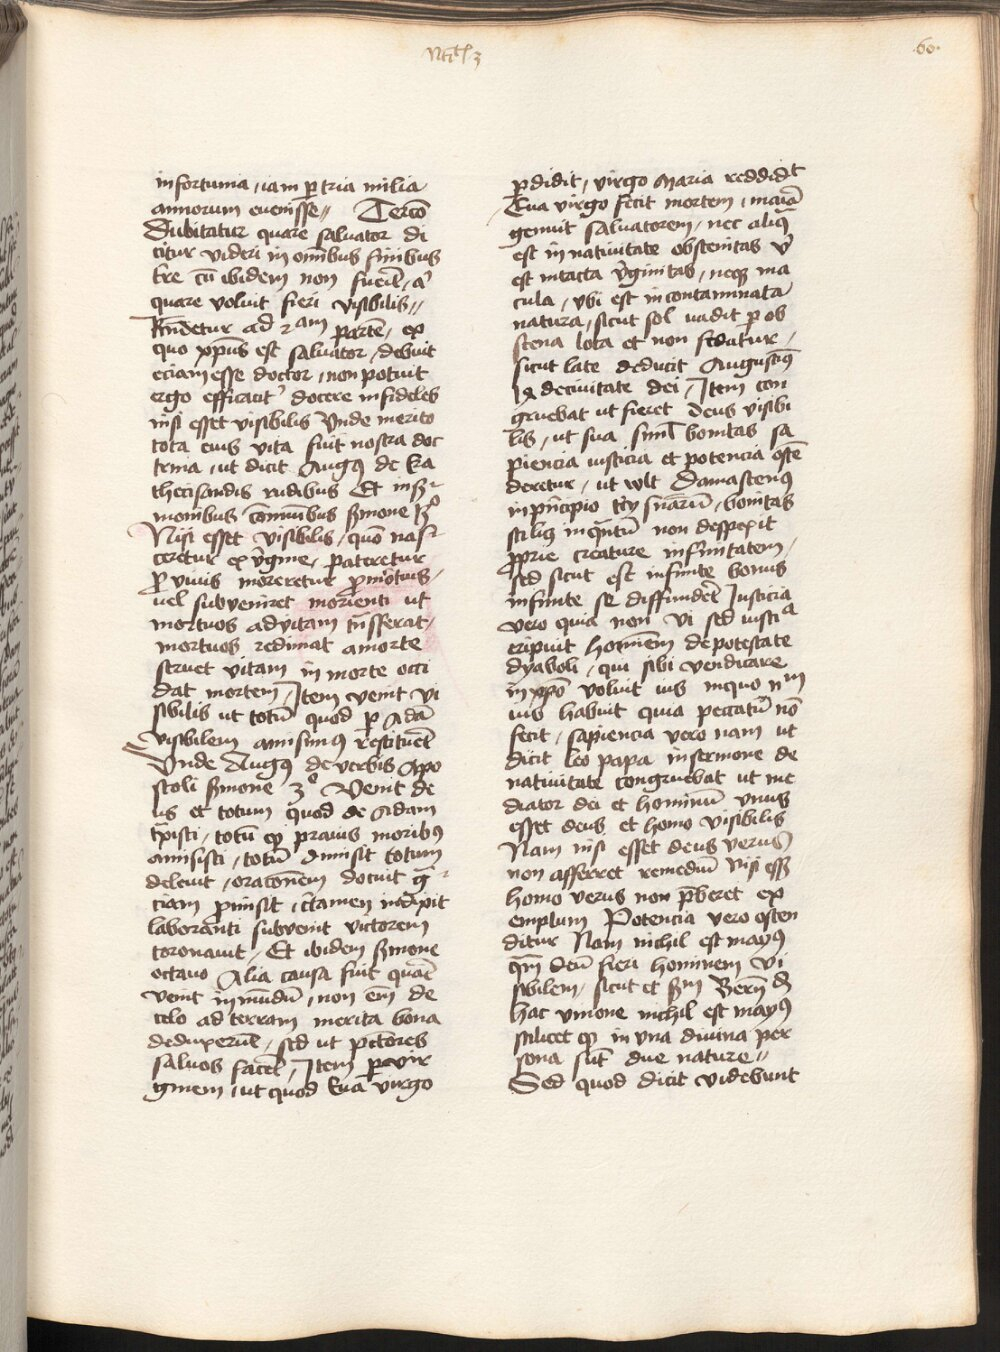 60.
infortunia, iam p tria milia
annorum euenisse// Tercõ
Dubitatur quare saluator di
citur videri in omĩbus finibus
tre cũ ibidem non fueĩt, a'
quare voluit fieri visibilis//
Rñdetur ad 2am partẽ, ex
quo xpũs est saluator, debuit
eciam esse doctor, non potuit
ergo efficacit' docere infideles
nisi esset visibilis Vnde merito
tota eius vita fuit nostra doc
trina, ut dicit Augꝰ de ka
thecisandis rudibus Et in
monibus cõmũibus smone
Nisi esset visibilis, quõ nas
ceretur ex v̾gine, pateretur
p viuis moreretur p mõtuis,
uel subueniret morienti ut
mortuos ad vitam tñsferat,
mortuos redimat a morte
seruet vitam in morte occi
dat mortem, Item venit vi
sibilis ut totũ quod p Adã
visibilem amisimꝰ restituẽt
Vnde Augꝰ de verbis Apo
stoli smone 3º Venit de
us et totum quod de Adam
t̃xisti, totũ qꝫ prauis moribꝰ
amisisti, totũ dimisit totum
deleuit, oracõnem docuit g̃
ciam p̃misit, ctamen indixit
laboranti subuenit victorem
coronauit, Et ibidem smone
octauo Alia causa fuit quãe
venit in mũdũ, non em̃ de
celo ad terram merita bona
deduxerũt, sed ut pctores
saluos facẽt, Item p vir
ginem, ut quod Eua virgo
pdidit, virgo Maria reddidt
Eua virgo fecit mortem, maria
genuit saluatorem, nec aliqꝰ
est in natiuitate obscenitas v'
est intacta v̾ginitas, neqꝫ ma
cula, vbi est incontaminata
natura, sicut sol vadit p ob
scena loca et non fedatur,
sicut late deducit Augustinꝰ
de ciuitate dei, Item con
gruebat ut fieret Deus visibi
lis, ut sua siml bonitas sa
piencia iusticia et potencia ostẽ
deretur, ut wlt Damascenꝰ
in pñcipio sñiarũ, bonitas
scilicꝫ inqũtũ non despexit
pprie creature infirmitatem,
sed sicut est infinite bonus
infinite se diffunderet Iusticia
vero quia non vi sed iusticia
eripuit hominẽm de potestate
dyaboli, qui sibi vendicare
in xp̃o voluit ius in quo nm
ius habuit quia peccatũ nõ
fecit, sapiencia vero nam ut
dicit leo papa in sermone de
natiuitate congruebat ut me
diator dei et hominũ vnus
esset deus et homo visibilis
Nam nisi esset deus verus
non afferret remediũ nisi ess3
homo verus non p̃beret ex
emplum Potencia vero osten
ditur Nam nichil est mayꝰ
qm̃ deũ fieri hominem vi
sibilem, sicut et sm Bern̄ d̾
hac vnione nichil est mayꝰ
scilicet qꝫ in vna diuina per
sona sũt due nature//
Sed quod dicit videbunt